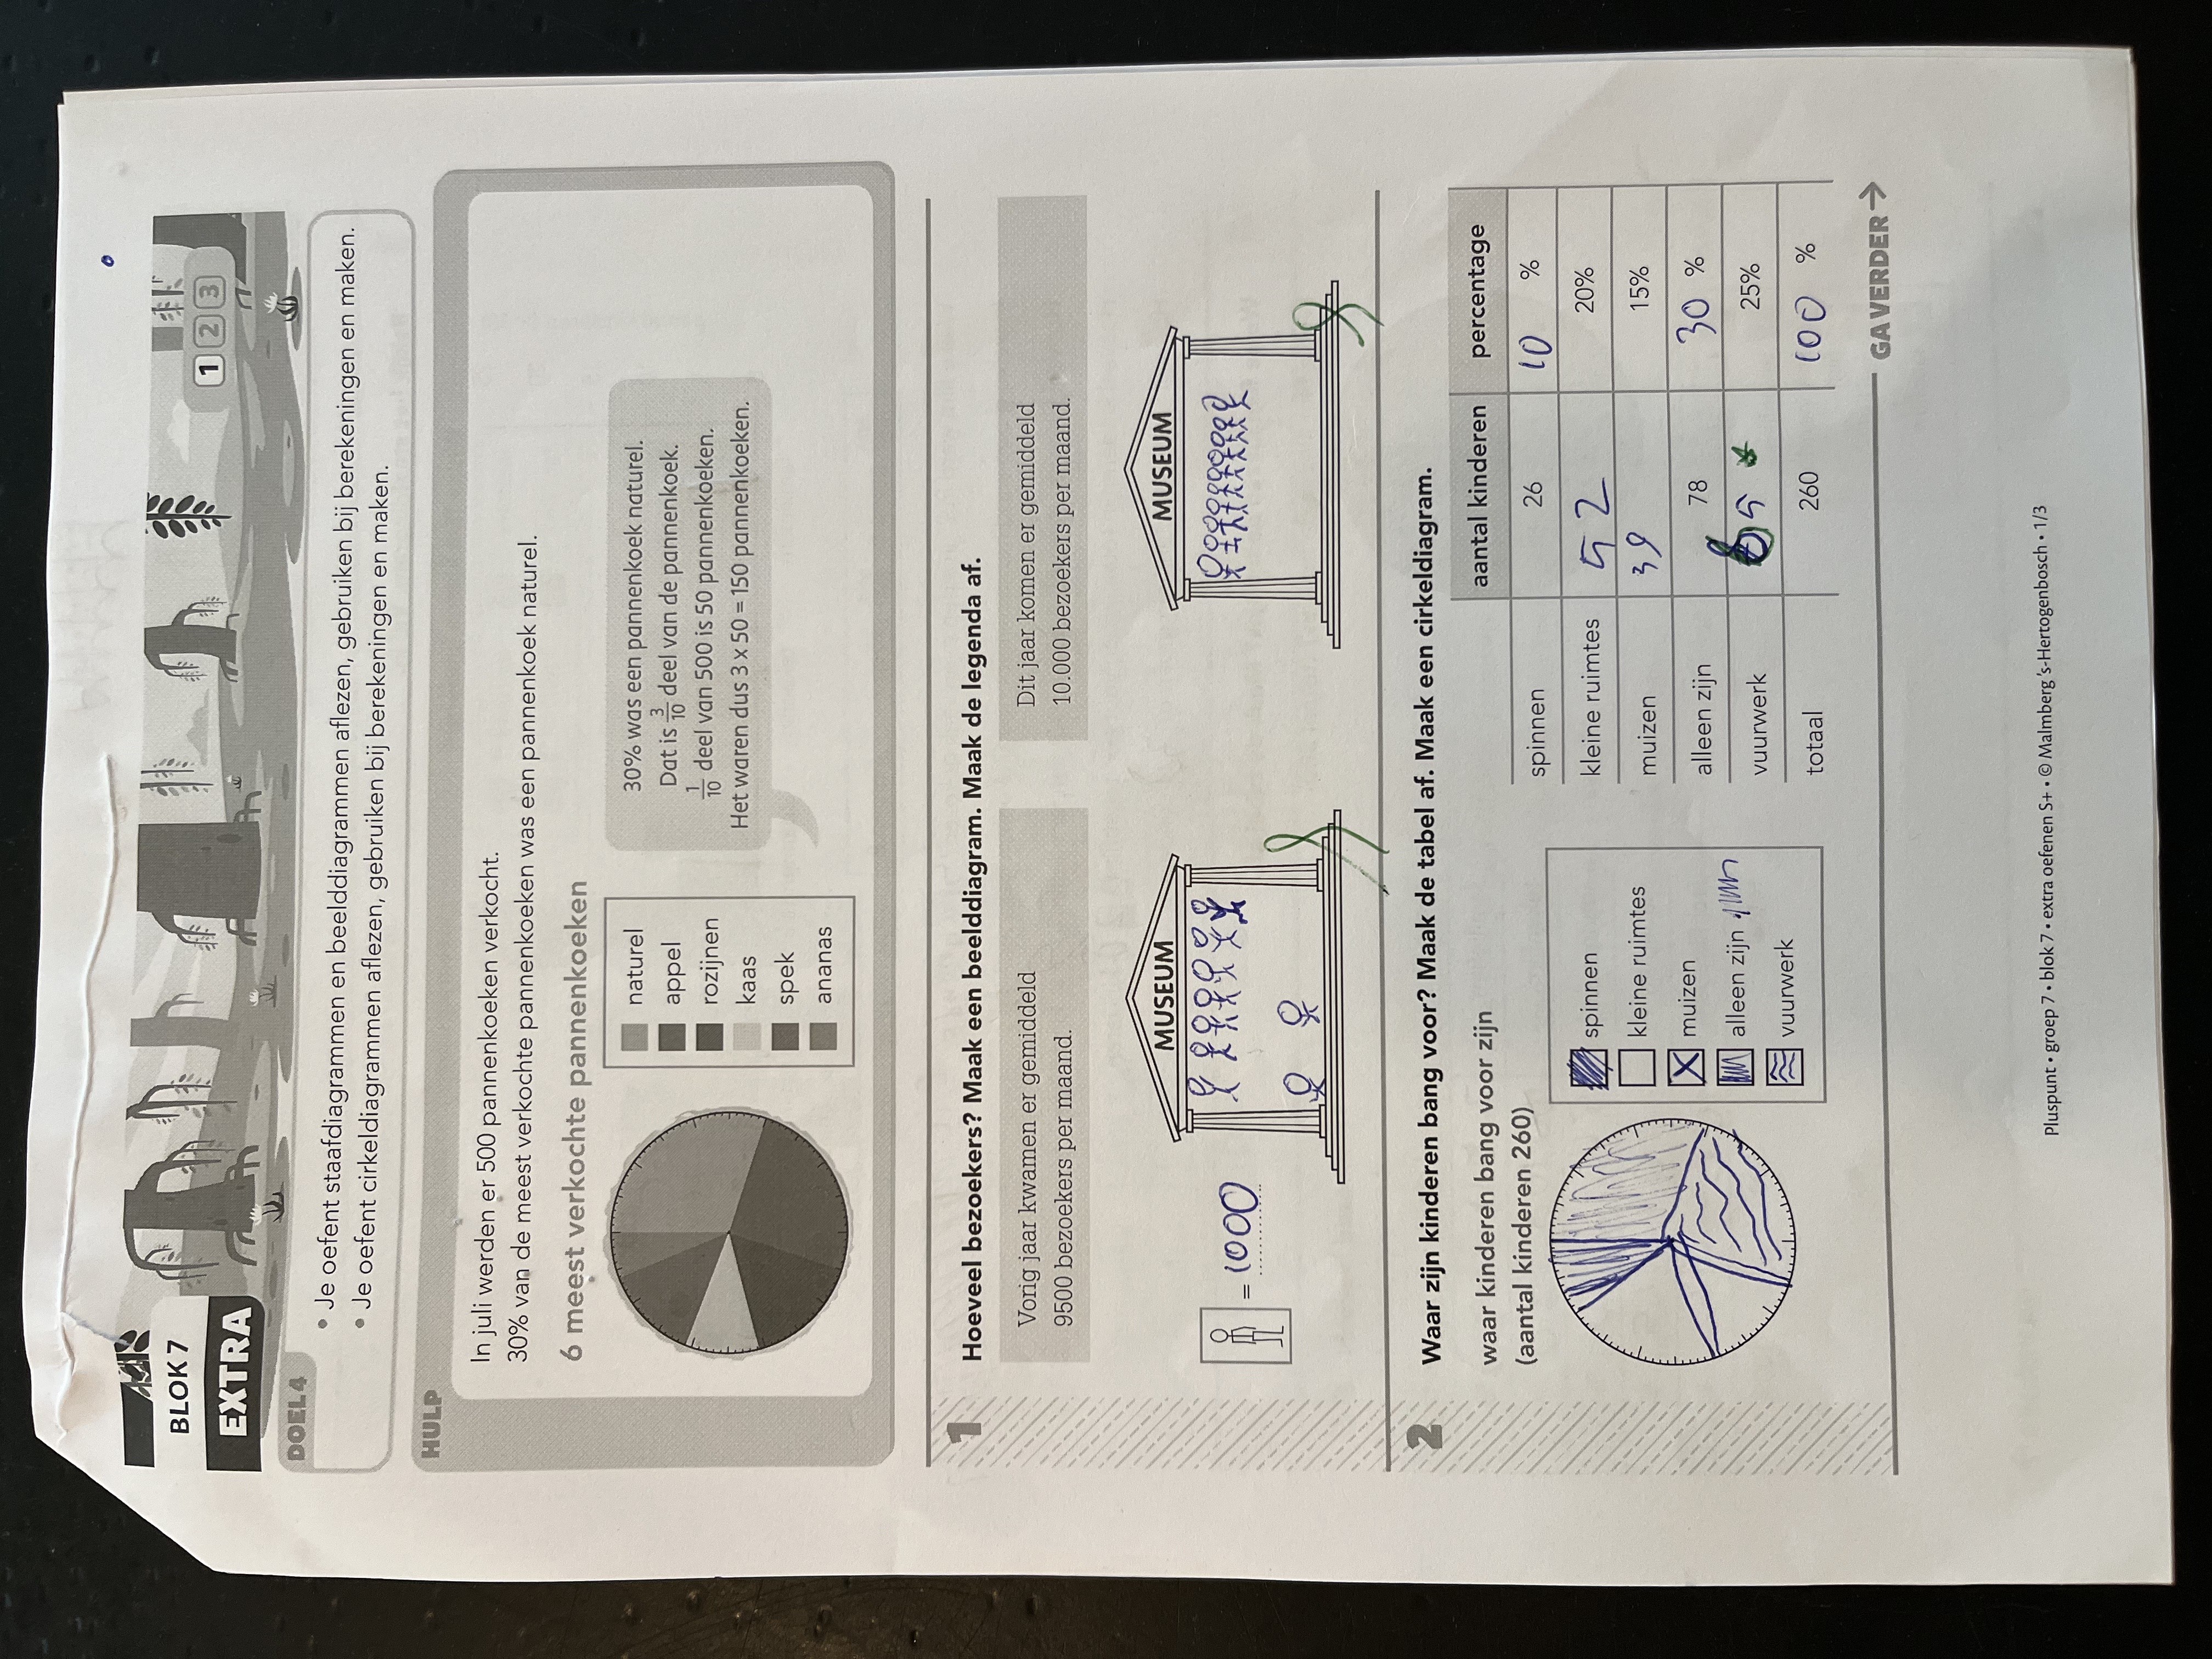 BLOK 7
EXTRA
1 2 3
DOEL 4
• Je oefent staafdiagrammen en beelddiagrammen aflezen, gebruiken bij berekeningen en maken.
• Je oefent cirkeldiagrammen aflezen, gebruiken bij berekeningen en maken.
HULP
In juli werden er 500 pannenkoeken verkocht.
30% van de meest verkochte pannenkoeken was een pannenkoek naturel.
6 meest verkochte pannenkoeken
naturel
appel
rozijnen
kaas
spek
ananas
30% was een pannenkoek naturel.
Dat is 3/10 deel van de pannenkoek.
1/10 deel van 500 is 50 pannenkoeken.
Het waren dus 3 x 50 = 150 pannenkoeken.
1 Hoeveel bezoekers? Maak een beelddiagram. Maak de legenda af.
Vorig jaar kwamen er gemiddeld
9500 bezoekers per maand.
Dit jaar komen er gemiddeld
10.000 bezoekers per maand.
= 1000
MUSEUM
MUSEUM
2 Waar zijn kinderen bang voor? Maak de tabel af. Maak een cirkeldiagram.
waar kinderen bang voor zijn
(aantal kinderen 260)
spinnen
kleine ruimtes
muizen
alleen zijn
vuurwerk
aantal kinderen percentage
spinnen 26 10 %
kleine ruimtes 52 20%
muizen 39 15%
alleen zijn 78 30 %
vuurwerk 65 25%
totaal 260 100 %
GA VERDER →
Pluspunt • groep 7 • blok 7 • extra oefenen S+ • © Malmberg 's-Hertogenbosch • 1/3